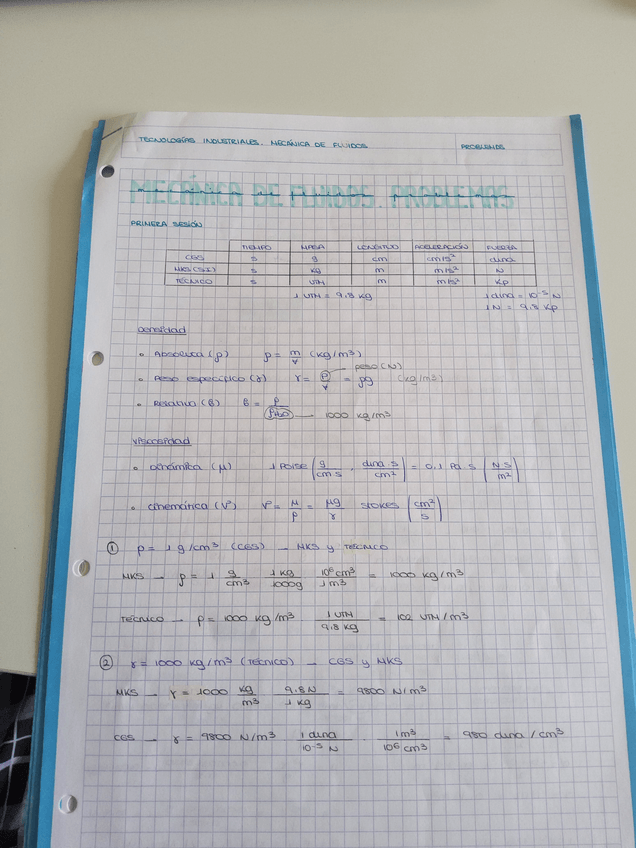 TECNOLOGÍAS INDUSTRIALES. MECÁNICA DE FLUIDOS PROBLEMAS
MECÁNICA DE FLUIDOS. PROBLEMAS
PRIMERA SESIÓN
TIEMPO MASA LONGITUD ACELERACIÓN FUERZA
CGS s g cm cm/s² dina
MKS (SI) s kg m m/s² N
TÉCNICO s UTM m m/s² Kp
1 UTM = 9.8 kg 1 dina = 10⁻⁵ N
1 N = 9.8 Kp
Densidad
• Absoluta (ρ) ρ = m/∀ (kg/m³)
• Peso específico (γ) γ = P/∀ = ρg (kg/m³) peso (N)
• Relativa (β) β = ρ/ρH₂O — 1000 kg/m³
Viscosidad
• Dinámica (μ) 1 Poise (g/cm s, dina·s/cm²) = 0.1 Pa·s (N·S/m²)
• Cinemática (ν) ν = μ/ρ = μg/γ STOKES (cm²/s)
① ρ = 1 g/cm³ (CGS) — MKS y TÉCNICO
MKS → ρ = 1 g/cm³ 1 kg/1000g 10⁶ cm³/1 m³ = 1000 kg/m³
TÉCNICO → ρ = 1000 kg/m³ 1 UTM/9.8 kg = 102 UTM/m³
② γ = 1000 kg/m³ (TÉCNICO) — CGS y MKS
MKS → γ = 1000 kg/m³ 9.8 N/1 kg = 9800 N/m³
CGS → γ = 9800 N/m³ 1 dina/10⁻⁵ N · 1m³/10⁶ cm³ = 980 dina/cm³